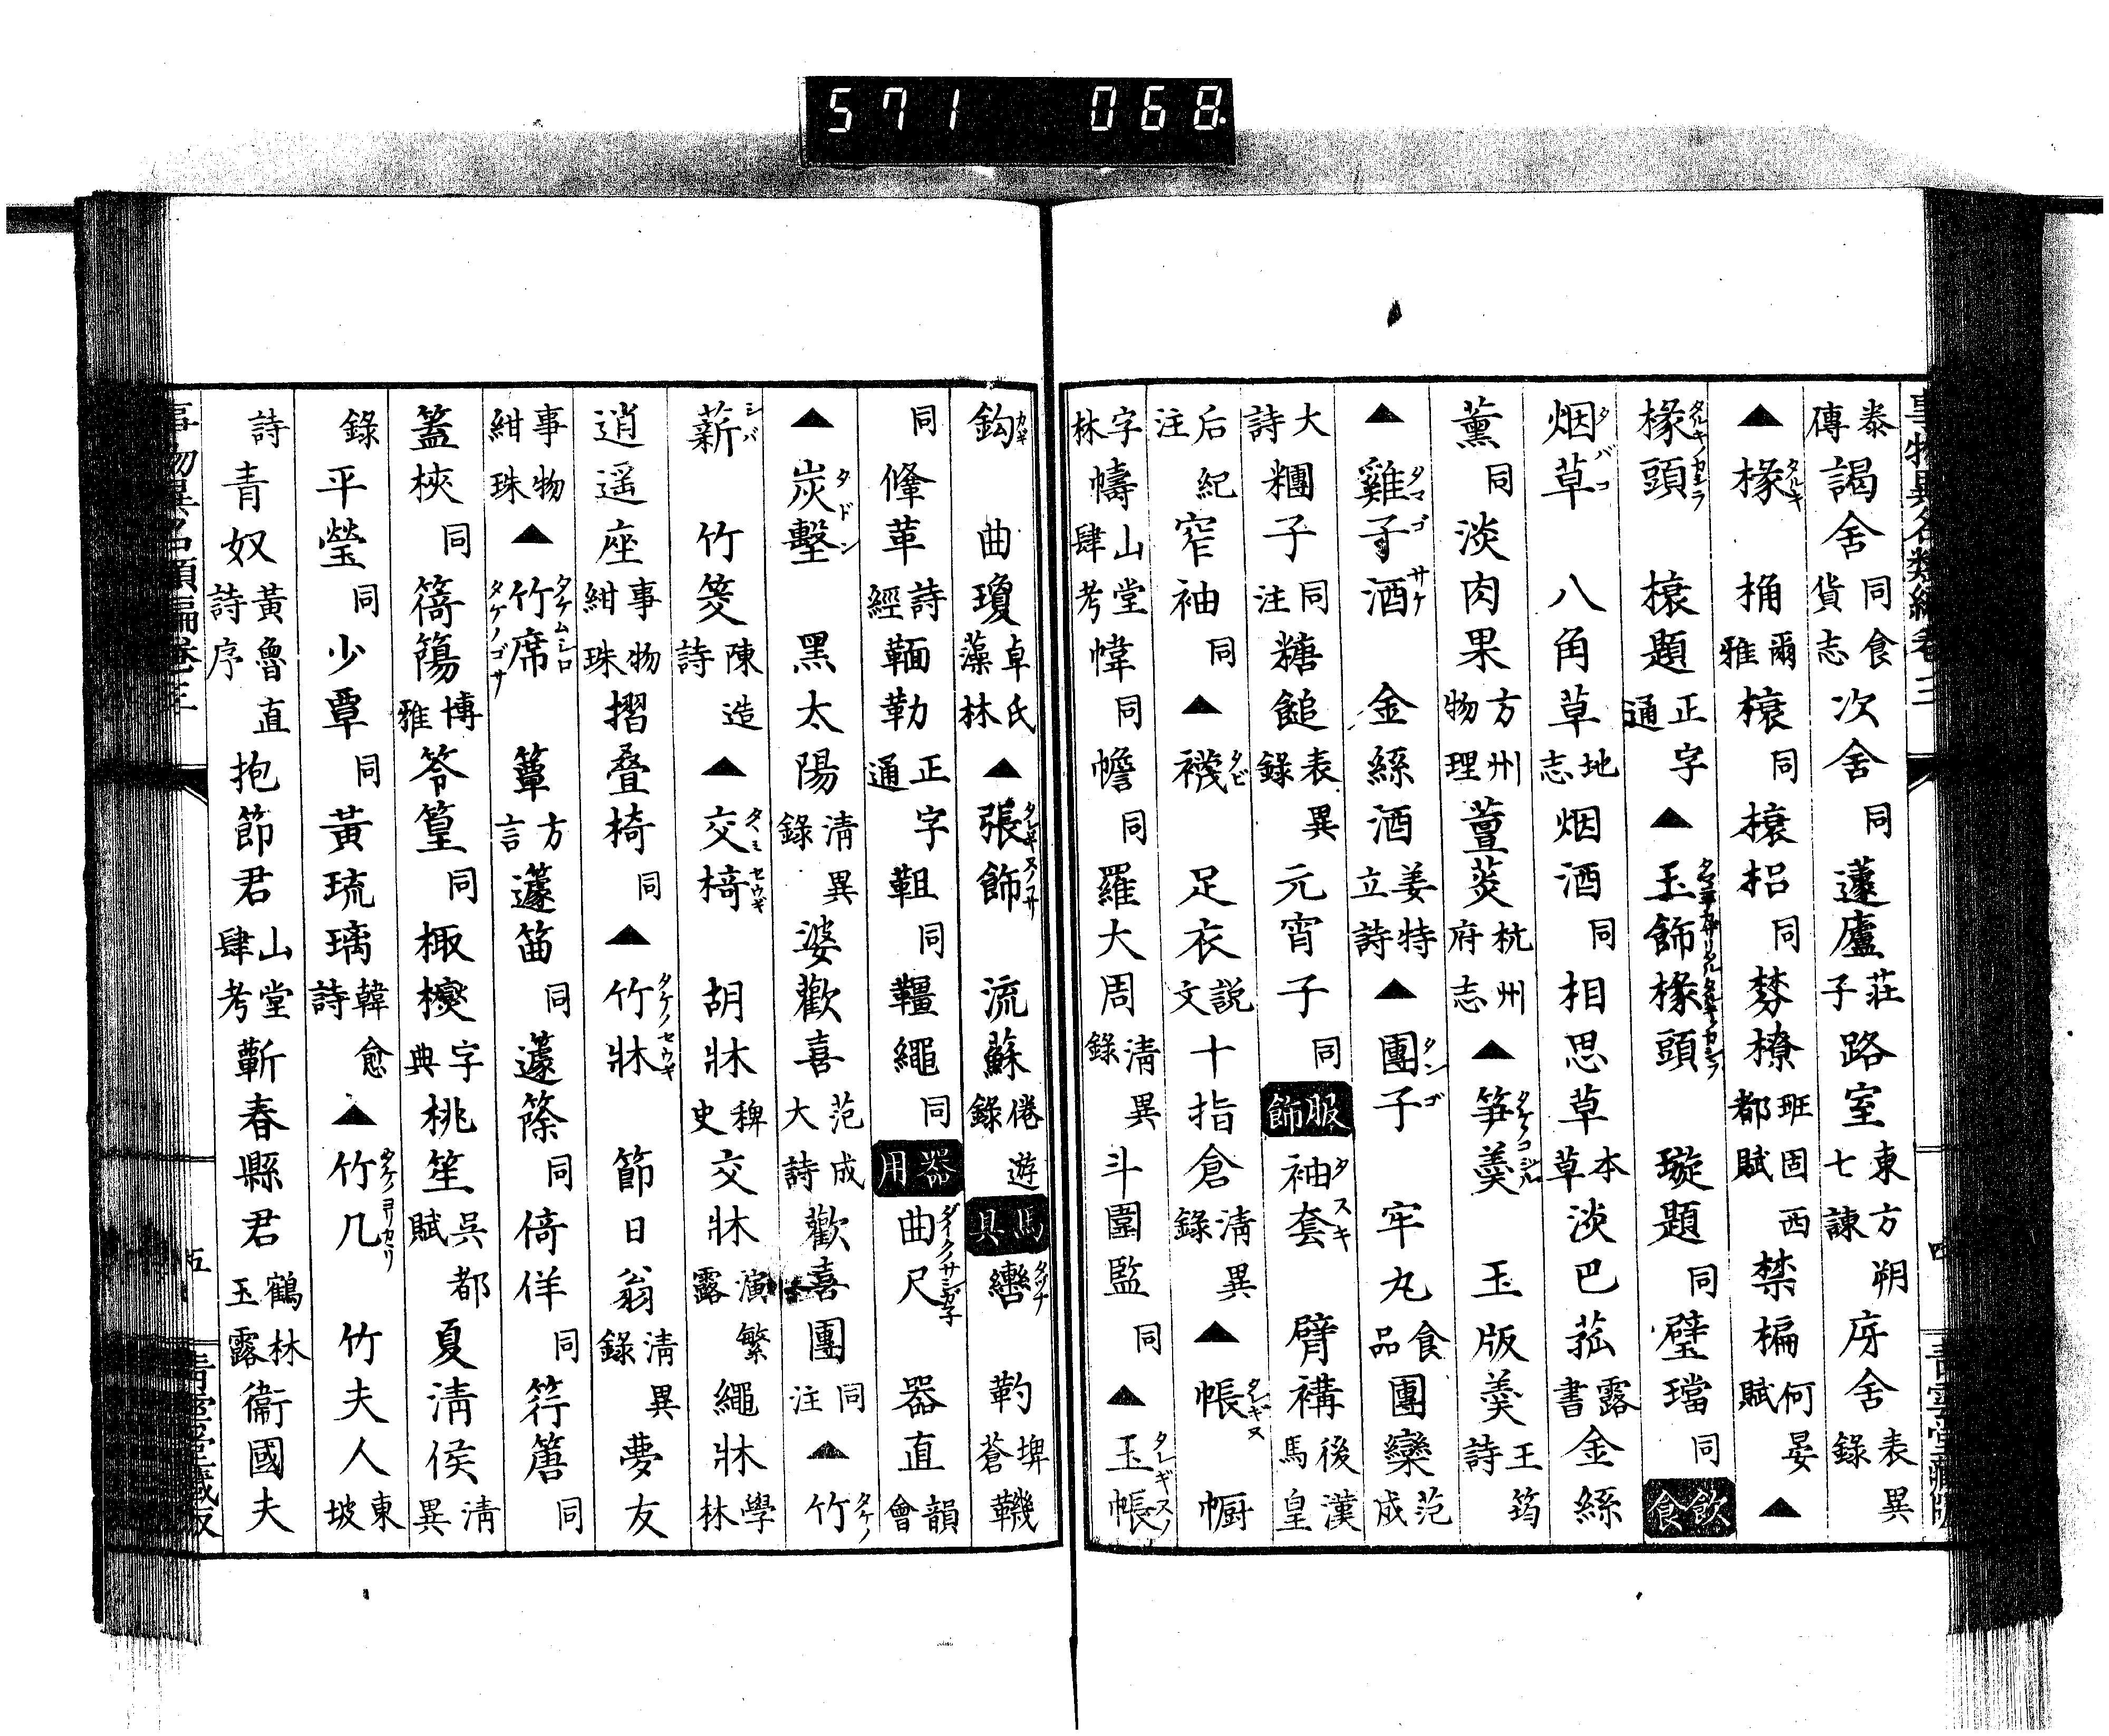 571 068
事物異名類編卷三
泰傳 謁舍 同食貨志 次舍 同 蘧廬 莊子 路室 東方朔七諫 庌舍 表異錄
▲椽 タルキ 桷 爾雅 榱 同 榱梠 同 棼橑 班固西都賦 禁楄 何晏賦 ▲
椽頭 榱題 正字通 ▲玉飾椽頭 璇題 同 璧璫 同 飲食
烟草 タバコ 八角草 地志 烟酒 同 相思草 本草 淡巴菰 露書 金絲
薰 同 淡肉果 方州物理 萱菼 杭州府志 ▲筍羹 玉版羹 王筠詩
▲雞子酒 タマゴサケ 金絲酒 姜特立詩 ▲團子 ダンゴ 牢丸 食品 團欒 范成
大詩 糰子 同注 糖䭔 表異錄 元宵子 同 服飾 袖套 タスキ 臂褠 後漢馬皇
后紀注 窄袖 同 ▲襪 タビ 足衣 説文 十指倉 清異錄 ▲帳 幮
字林 幬 山堂肆考 幃 同 幨 同 羅大周 清異錄 斗圍監 同 ▲玉帳
鈎 カギ 曲瓊 卓氏藻林 ▲張飾 流蘇 倦遊錄 馬具 轡 タヅナ 靮 埤蒼 鞿
同 鞗革 詩經 鞙勒 正字通 靻 同 韁繩 同 器用 曲尺 器直 韻會
▲炭墼 タドン 黑太陽 清異錄 婆歡喜 范成大詩 歡喜團 同注 ▲竹 タケノ
薪 シバ 竹筊 陳造詩 ▲交椅 胡牀 稗史 交牀 演繁露 繩牀 學林
逍遥座 事物紺珠 摺疊椅 同 ▲竹牀 節日翁 清異錄 夢友
事物紺珠 ▲竹席 タケムシロ タケノゴサ 簟 方言 籧笛 同 籧篨 同 倚佯 同 筕篖 同
簠梜 同 䈎簜 博雅 笭篁 同 棷櫕 字典 桃笙 吳都賦 夏清侯 清異
錄 平瑩 同 少覃 同 黃琉璃 韓愈詩 ▲竹几 竹夫人 東坡
詩 青奴 黃魯直詩序 抱節君 山堂肆考 蘄春縣君 鶴林玉露 衞國夫
事物異名類編卷三 五 青雲堂藏版